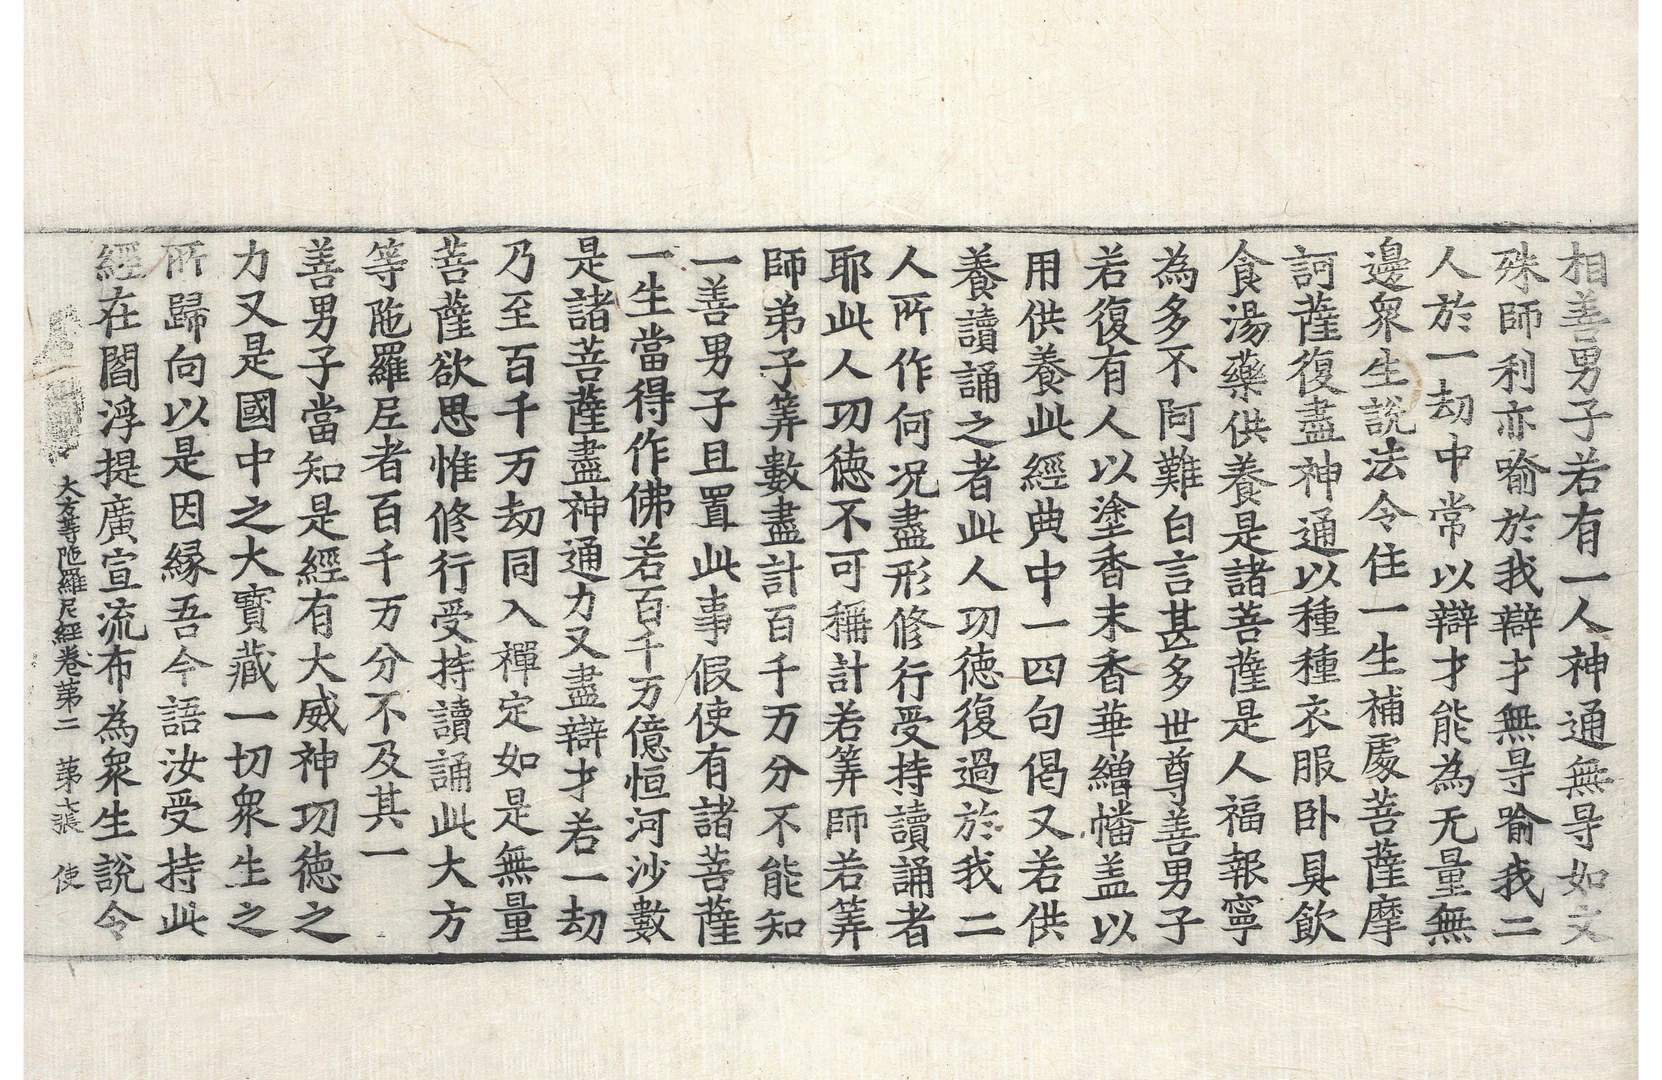 相善男子若有一人神通無㝵如文
殊師利亦喻於我辯才無㝵喻我二
人於一劫中常以辯才能為无量無
邊衆生說法令住一生補處菩薩摩
訶薩復盡神通以種種衣服卧具飲
食湯藥供養是諸菩薩是人福報寧
為多不阿難白言甚多世尊善男子
若復有人以塗香末香華繒幡盖以
用供養此經典中一四句偈又若供
養讀誦之者此人功德復過於我二
人所作何况盡形修行受持讀誦者
耶此人功德不可稱計若筭師若筭
師弟子筭數盡計百千万分不能知
一善男子且置此事假使有諸菩薩
一生當得作佛若百千万億恒河沙數
是諸菩薩盡神通力又盡辯才若一劫
乃至百千万劫同入禪定如是無量
菩薩欲思惟修行受持讀誦此大方
等陁羅尼者百千万分不及其一
善男子當知是經有大威神功德之
力又是國中之大寳藏一切衆生之
所歸向以是因縁吾今語汝受持此
經在閻浮提廣宣流布為衆生說令
大方等陁羅尼經卷第二　第七張　使